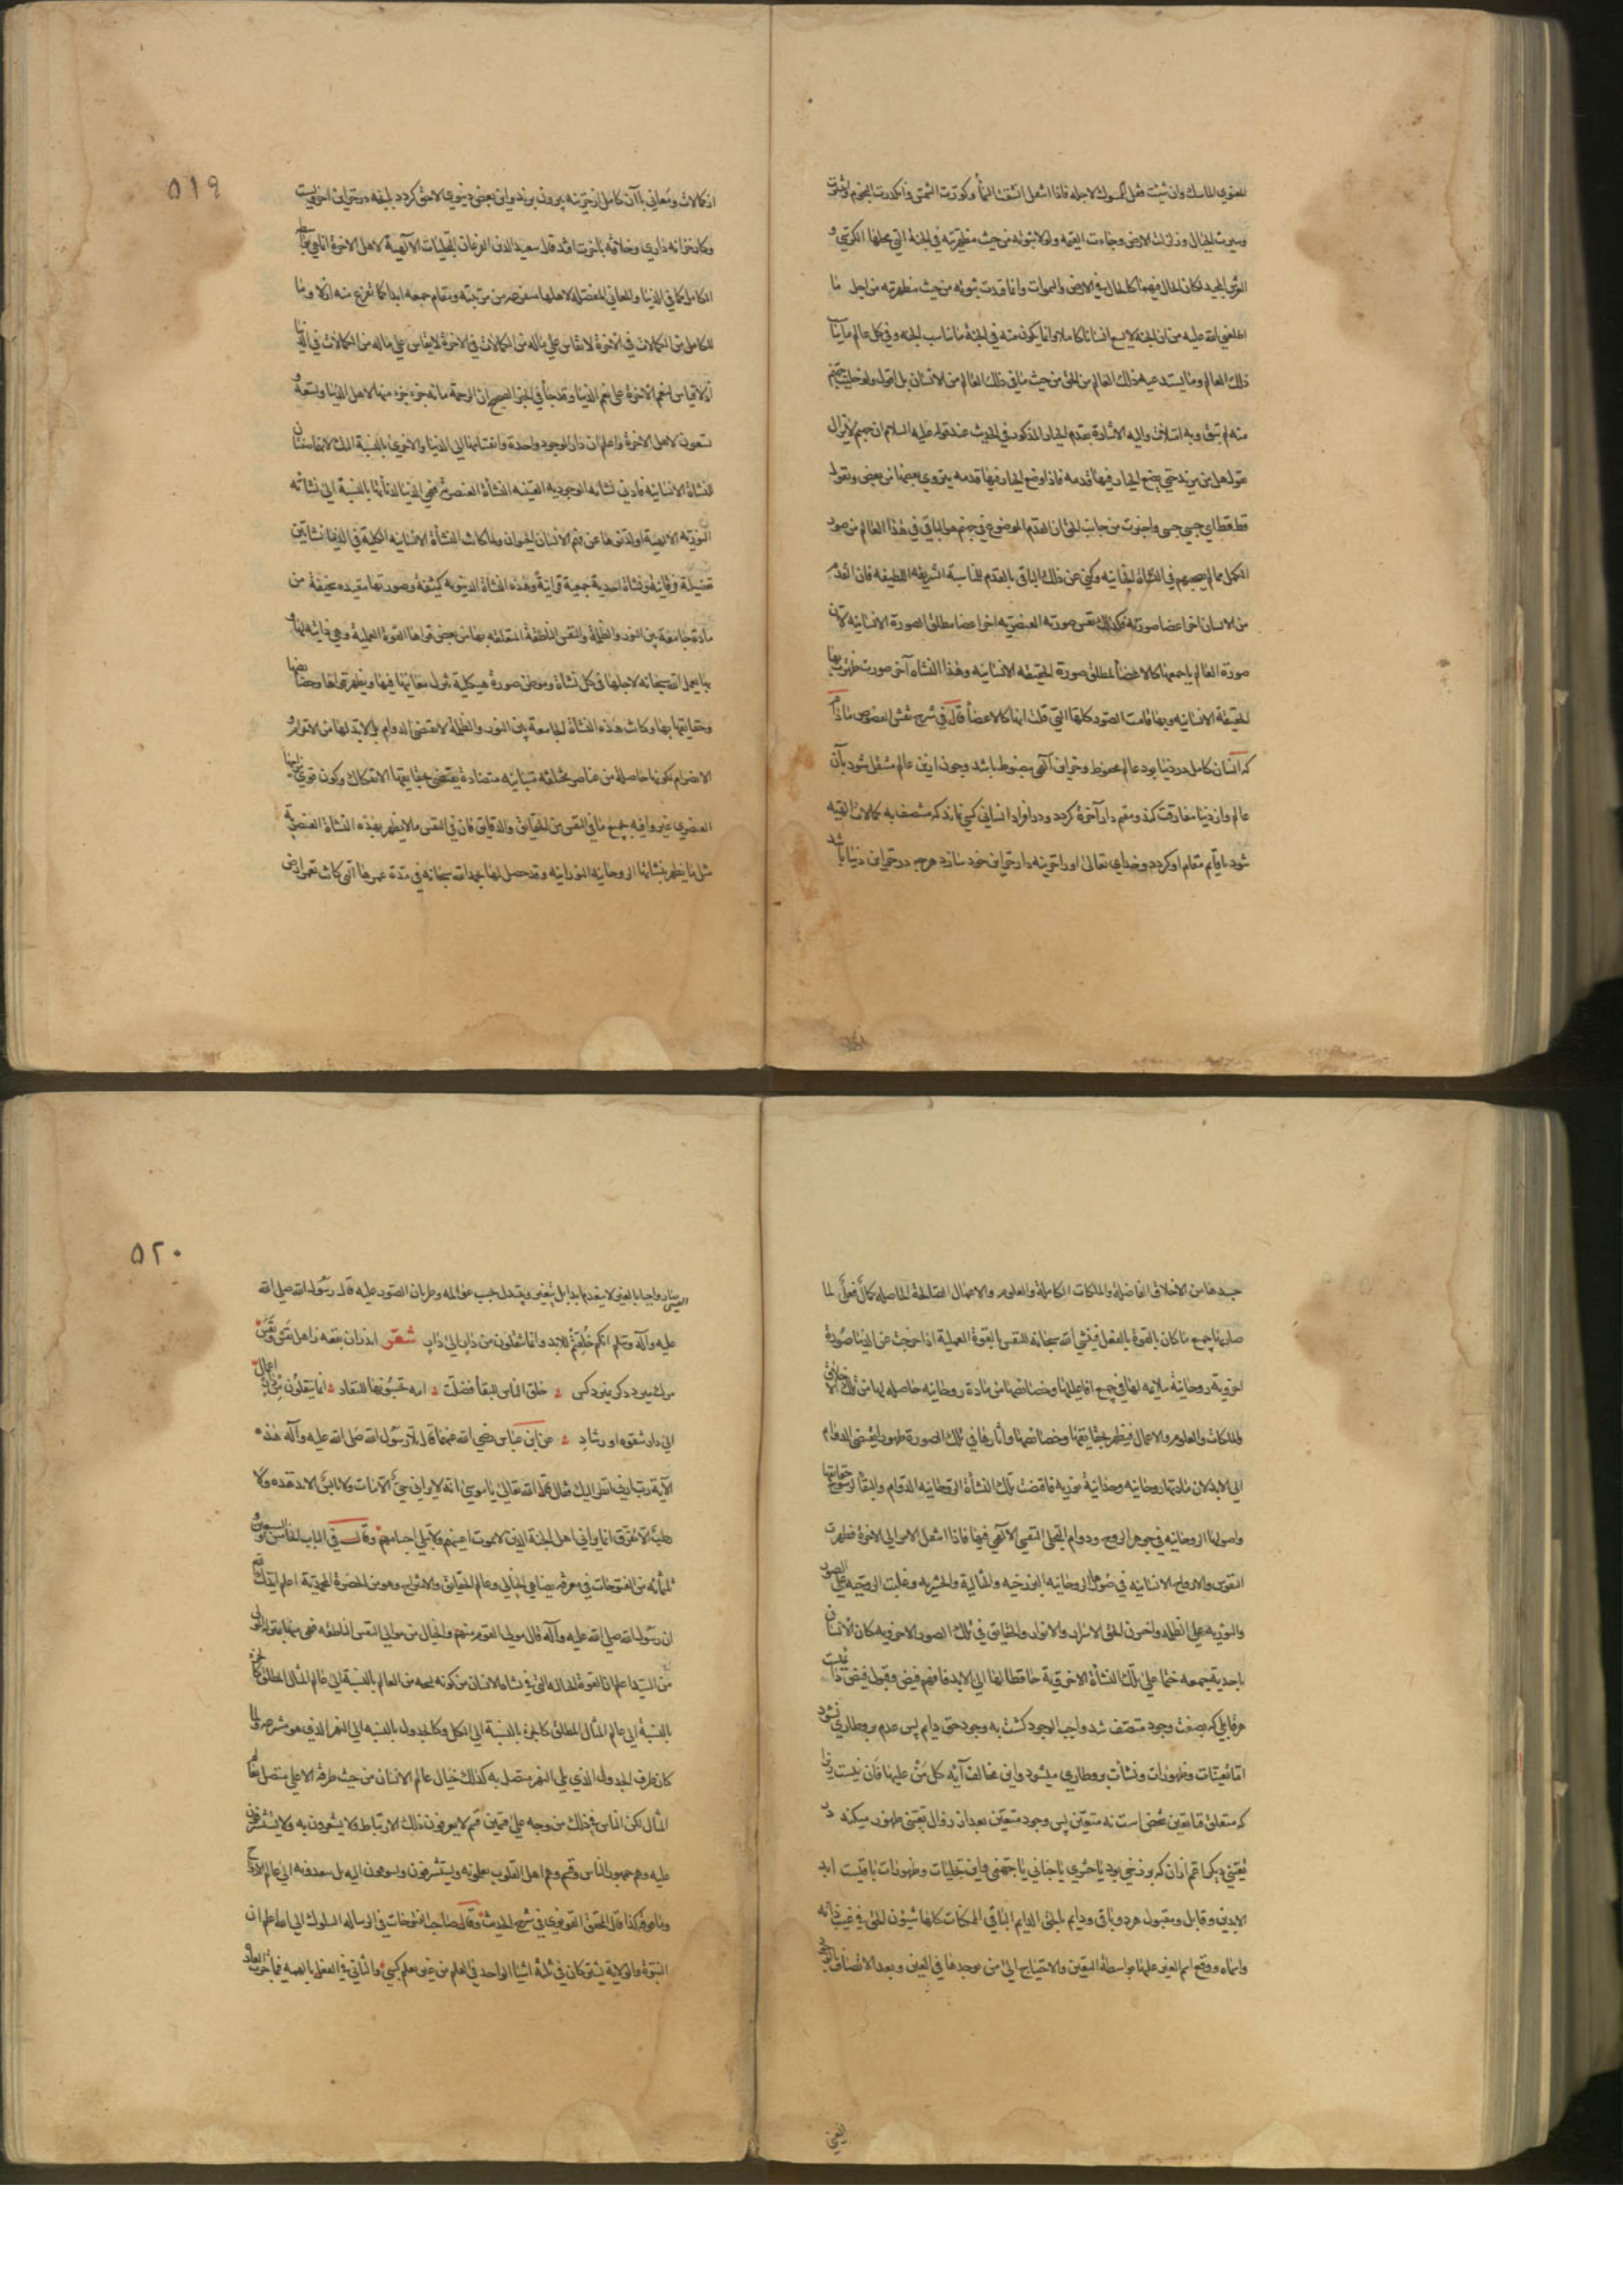 المعنوي الماسك وان شئت فقل الممسوك لاجله فاذا انتقل انشقت السمأ وكورت الشمس وانكدرت النجوم وانتثرت
وسيرت الجبال وزلزلت الارض وجاءت القيمه ولولا ثبوته من حيث مظهريته في الجنة التي محلها الكرسي و
العرش المجيد لكان الحال فيهما كالحال في الارض والسموات وانما قيدت ثبوته من حيث مظهريته من اجل ما
اطلعني الله عليه من ان الجنة لا تسع انسانا كاملا وانما يكون منه في الجنة ما يناسب الجنه وفي كل عالم ما يناسب
ذلك العالم وما يستدعيه ذلك العالم من الحق من حيث ما في ذلك العالم من الانسان بل اقول ولو خليت جهنم
منه لم تبق وبه امتلات واليه الاشارة بقدم الجبار المذكور في الحديث عند قوله عليه السلام ان جهنم لا يزال
تقول هل من مزيد حتي يضع الجبار فيها قدمه فاذا وضع الجبار فيها قدمه ينزوي بعضها من بعض وتقول
قط قط اي حسبي حسبي واخبرت من جانب الحق ان القدم الموضوع في جهنم هو الباقي في هذا العالم من صور
الكمل مما لم يصحبهم في النشاة الجنانيه وكني عن ذلك الباقي بالقدم لمناسبة الشريفه اللطيفه فان القدم
من الانسان اخر اعضا صورته فكذلك نفس صورته العنصريه اخر اعضا مطلق الصورة الانسانيه لان
صورة العالم باجمعها كالاعضأ لمطلق صورة الحقيقه الانسانيه وهذا النشاه آخر صورت ظهرت بها
الحقيقة الانسانيه وبها قامت الصور كلها التي قلت انها كالاعضأ قال في شرح نقش الفصوص مادام
كه انسان كامل در دنيا بود عالم محفوظ وخزاين آلهي مضبوط باشد وچون ازين عالم منتقل شود بآن
عالم واز دنيا مفارقت كند ومقيم دار آخرة كردد ودر افراد انساني كسي نماند كه متصف به كمالات الهيه
شود تا قايم مقام او كردد وخداي تعالى او را خزينه دار خزاين خود سازد هرچه در خزاين دنيا باشد
از كمالات ومعاني با آن كامل از خزينه بيرون برند واين بعض دنيوي لاحق كردد ببعضه در خزاين اخرويست
وكار خزانه داري وخلافة بآخرت افتد قال سعيد الدين الفرغاني التجليات الآلهية لاهل الاخرة انما هي بواسطة
الكامل كما في الدنيا والمعاني المفصلة لاهلها متفرعه من مرتبته ومقام جمعه ابدا كما تفرع منه ازلا وما
للكامل من الكمالات في الآخرة لا يقاس علي ماله من الكمالات في الدنيا
اذ لا قياس لنعم الآخرة على نعم الدنيا وقد جأ في الخبر الصحيح ان الرحمة مائه جزء جزء منها لاهل الدنيا وتسعة و
تسعون لاهل الآخرة واعلم ان دار الوجود واحدة وانقسامها الي الدنيا والاخري بالنسبة اليك لانهما صفتان
للنشاة الانسانيه فادني نشاته الوجوديه العينيه النشأة العنصرية فهي الدنيا لدنأتها بالنسبة الي نشاته
النورية الالهية او لدنوها عن فهم الانسان الحيوان ولما كانت النشأة الانسانيه الكلية في الدنيا نشاتين
تفصيلة فرقانية ونشأة احدية جمعية قرانية وهذه النشأة الدنيويه كثيفة وصورتها مقيده سخيفة من
مادة جامعة بين النور والظلمة والنفس الناطقة المتعلقه بها من بعض قواها القوة العملية وهي ذاتيه لها و
بها يعمل الله سبحانه لاجلها في كل نشاة وموطن صورة هيكلية ينزل معانيها فيها ويظهر قواها وخصايصها
وحقايقها بها وكانت هذه النشأة الجامعة بين النور والظلمة لا يقتضي الدوام بل لابد لها من الانخرام و
الانصرام لكونها حاصلة من عناصر مختلفة متباينه متضادة يقتضي بحقايقها الانفكاك وكون قوي مزاجها
العنصري غير وافيه بجميع ما في النفس من الحقايق والدقايق فان في النفس ما لا يظهر بهذه النشأة العنصرية
مثل ما يظهر بنشاتها الروحانيه النورانيه وقد حصل لها بحمد الله سبحانه في مدة عمرها التي كانت تعمر ارض
جسدها من الاخلاق الفاضلة والملكات الكاملة والعلوم والاعمال الصالحة الحاصله كمال فعلي لما
صار بها جميع ما كان بالقوة بالفعل فينشي الله سبحانه للنفس بالقوة العملية اذا خرجت عن الدنيا صورة
اخروية روحانية ملايمه لها في جميع افاعيلها وخصايصها من مادة روحانيه حاصله لها من تلك الاخلاق
والملكات والعلوم والاعمال فيظهر بحقايقها وخصايصها واثارها في تلك الصورة ظهورا يقتضي الدوام
الي الابد لان مادتها روحانيه وحدانية نوريه فاقتضت تلك النشأة الروحانيه الدوام والبقأ لرسوخ حقايقها
واصولها الروحانيه في جوهر الروح ودوام التجلي النفسي الآلهي فيها فاذا انتقل الامر الي الاخرة فظهرت
النفوس والارواح الانسانيه في صور الروحانيه البرزخيه والمثالية والحشريه وغلبت الروحيه على الصور
والنوريه على الظلمه واخزن الحق الاسرار والانوار والحقايق في تلك الصور الاخرويه كان الانسان
باحدية جمعه ختما علي تلك النشأة الاخروية حافظا لها الي الابد فافهم فيض وقبول فيض ذا
هر قابلي كه بصفت وجود متصف شد واجب الوجود كشت به وجود حق دايم پس عدم برو طاري نشود
اما تعينات وظهورات ونشأت برو طاري ميشود واين مخالف آيه كل من عليها فان نيست زيرا
كه متعلق فنا تعين شخص است نه متعين پس وجود متعين بعد از زوال تعيني ظهور ميكند در
تعيني ديكر اعم از ان كه برزخي بود يا حشري يا جناني يا جهنمي واين تجليات وظهورات باقيست ابد
الابدين وقابل ومقبول هر دو باقي ودايم بالحق الدايم الباقي الممكنات كلها شيون الحق في غيب ذاته
واسماءه ووقع اسم الغير عليها بواسطة التعين والاحتياج الي من يوجدها في العين وبعد الاتصاف بالوجود
العيني
العيني صار واجبا بالغير لا ينعدم ابدا بل يتغير ويتبدل بحسب عوالمه وطريان الصور عليه قال رسول الله صلى الله
عليه وآله وسلم انكم خلقتم للابد وانما تنقلون من دار الي دار شعر
خلق الناس للبقأ فضلت امه يحسبونها للنفاد انما ينقلون من دار اعمال
الي دار شقوه او رشاد عن ابن عباس رضي الله عنهما قال تلا رسول الله صلى الله عليه وآله هذه
الآية رب ارني انظر اليك فقال قال الله تعالى يا موسى انه لا يراني حي الا مات ولا يابس الا تدهده ولا
رطب الا تفرق انما يراني اهل الجنة الذين لا يموت اعينهم ولا تبلي اجسامهم وقال في الباب الخامس والسبعين
وثلثمائه من الفتوحات في معرفة تضاهي الخيالي وعالم الحقايق والامتزاج وهو من الحضرة المحمدية اعلم ايدك الله
ان رسول الله صلى الله عليه وآله قال مولى القوم منهم والخيال من موالي النفس الناطقه فهي منها بمنزلة المولي
من السيد اعلم ان القوة الخياليه التي في نشاه الانسان من كونه نسخه من العالم بالنسبة الي عالم المثال المطلق كالجزء
بالنسبة الي عالم المثال المطلق كالجزء بالنسبة الي الكل وكالجدول بالنسبه الي النهر الذي هو مشرعه وكما
كان طرف الجدول الذي يلي النهر متصل به كذلك خيال عالم الانسان من حيث طرفه الاعلى متصل بعالم
المثال لكن الناس في ذلك من وجه على قسمين قسم لا يعرفون ذلك الارتباط ولا يشعرون به ولا يستشرفون
عليه وهم جمهور الناس وقسم وهم اهل القلوب يعلمونه ويستشرفون ويسرهون اليه بل ينفدون منه الي عالم الارواح
وما فوقه كذا قال المحقق القونوي في شرح الحديث وقال صاحب الفتوحات في الرساله السلوك الي الله اعلم ان
النبوة والولاية يشتركان في ثلثة اشيا الواحد في العلم من غير تعلم كسبي والثاني في الفعل بالهمه فيما جرت العاده
٥١٩
٥٢٠